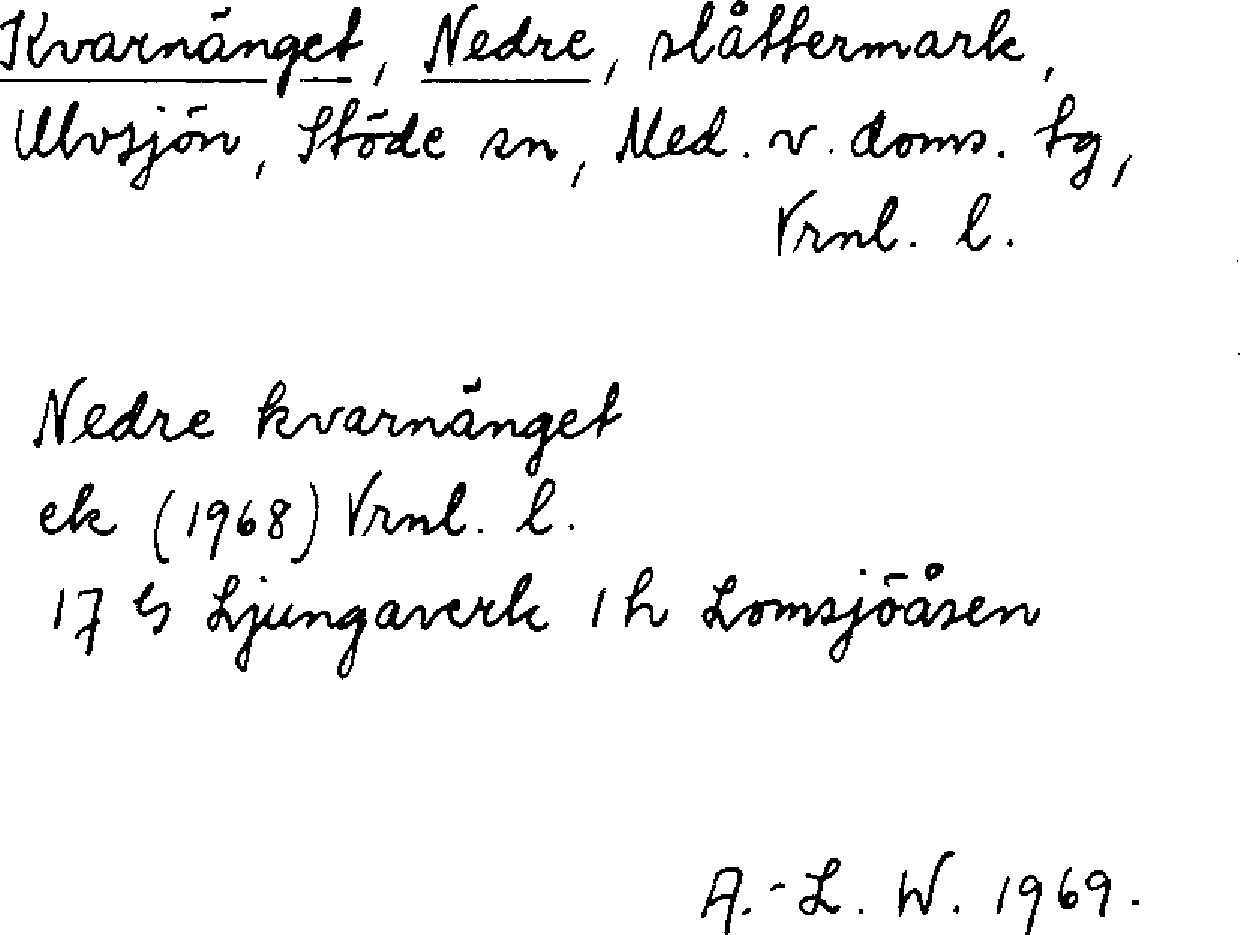 Kvarnänget, Nedre, slåttermark,
Ulvsjön, Stöde sn, Med. v. doms. tg,
Vrnl. l.
Nedre kvarnänget
ek (1968) Vrnl. l.
17 G Ljungaverk 1 h Lomsjöåsen
A.-L. W. 1969.